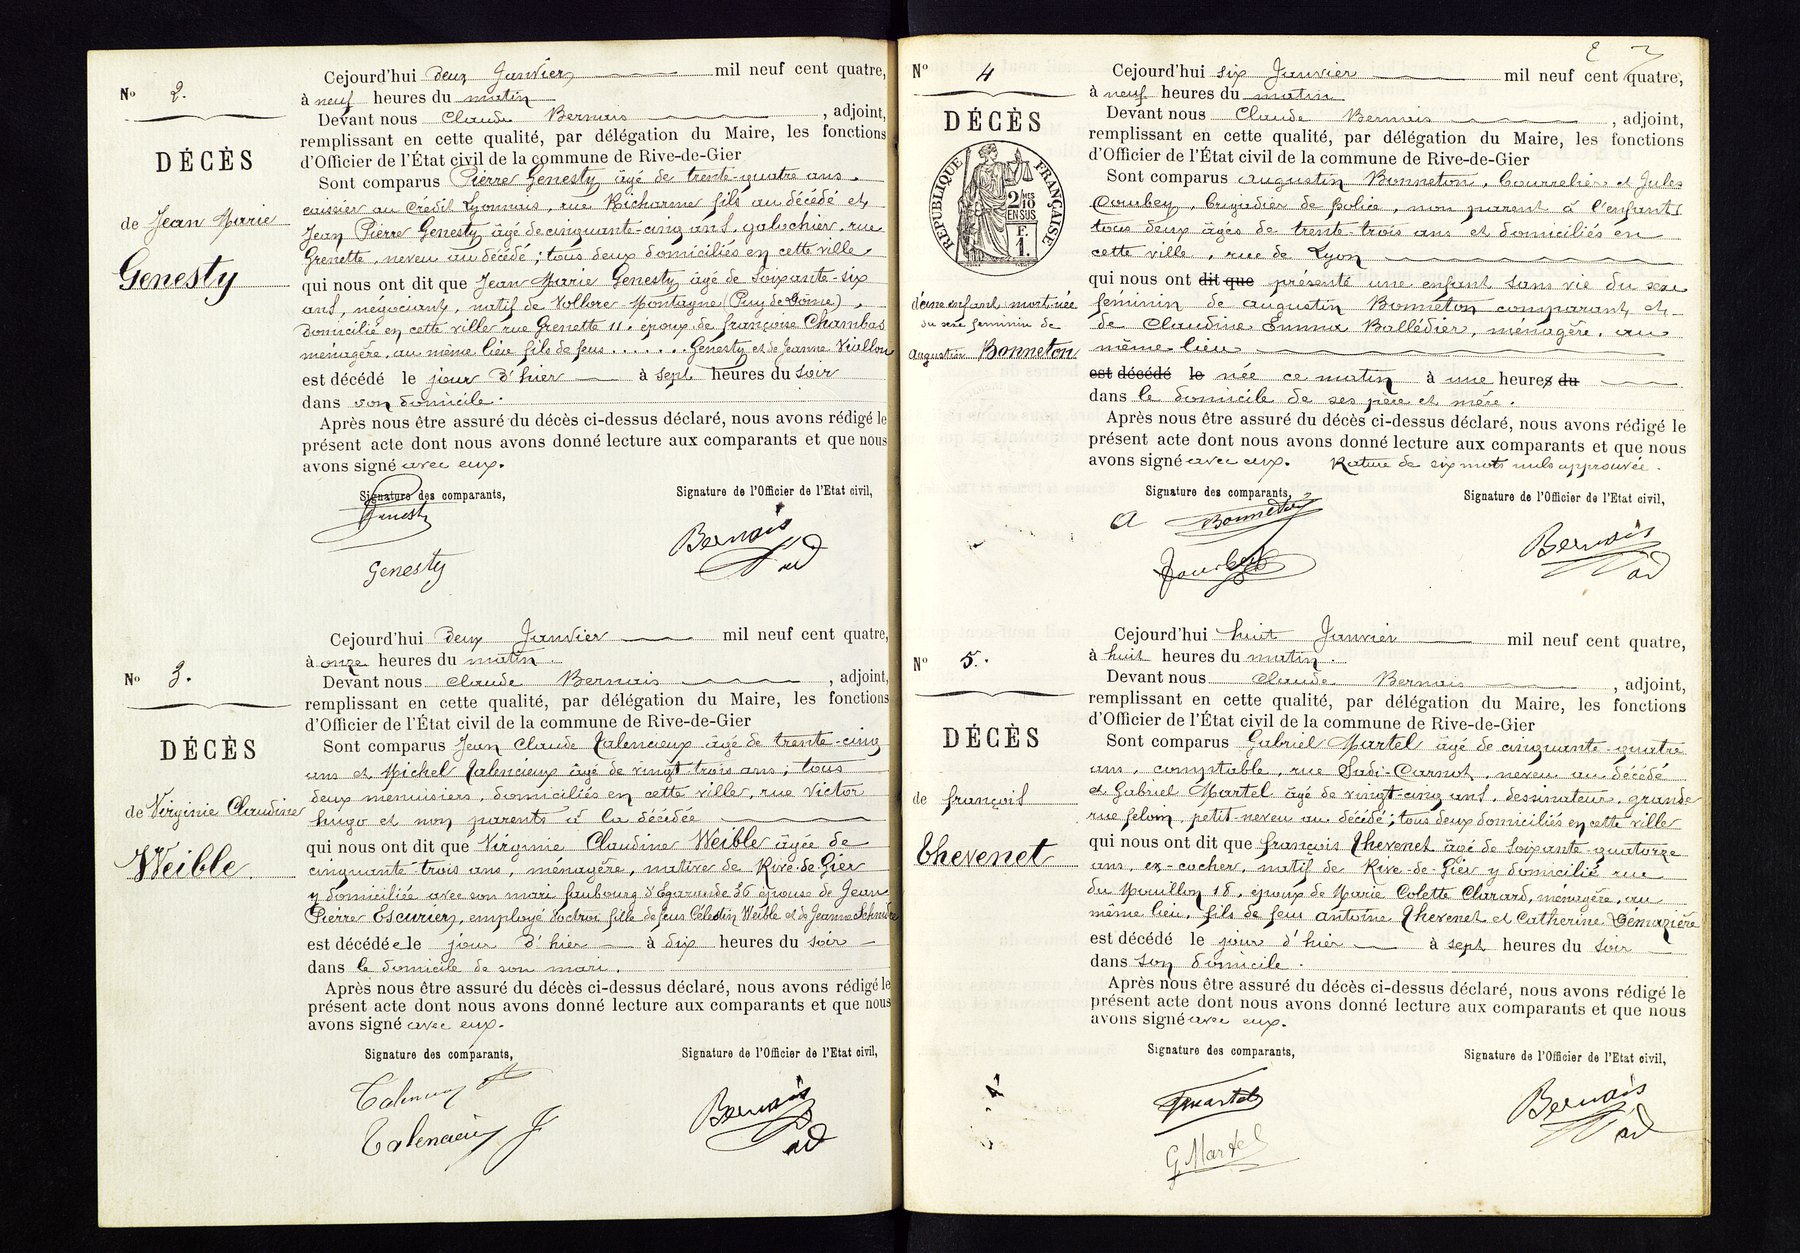 No 2.
DÉCÈS
de Jean Marie
Genesty
Cejourd'hui deux Janvier mil neuf cent quatre,
à neuf heures du matin
Devant nous Claude Bernais, adjoint,
remplissant en cette qualité, par délégation du Maire, les fonctions
d'Officier de l'État civil de la commune de Rive-de-Gier
Sont comparus Pierre Genesty âgé de trente-quatre ans,
caissier au Crédit Lyonnais, rue Richarme fils au décédé et
Jean Pierre Genesty âgé de cinquante-cinq ans, galochier, rue
Grenette, neveu au décédé ; tous deux domiciliés en cette ville
qui nous ont dit que Jean Marie Genesty âgé de soixante-six
ans, négociant, natif de Vollore-Montagne (Puy de Dôme),
domicilié en cette ville rue Grenette 11, époux de françoise Chambas
ménagère, au même lieu fils de feus ....... Genesty et de Jeanne Viallon
est décédé le jour d'hier à sept heures du soir
dans son domicile.
Après nous être assuré du décès ci-dessus déclaré, nous avons rédigé le
présent acte dont nous avons donné lecture aux comparants et que nous
avons signé avec eux.
Signature des comparants,
Signature de l'Officier de l'Etat civil,
Genesty
Bernais
Genesty
ad
No 3.
DÉCÈS
de Virginie Claudine
Weible
Cejourd'hui deux Janvier mil neuf cent quatre,
à onze heures du matin.
Devant nous Claude Bernais, adjoint,
remplissant en cette qualité, par délégation du Maire, les fonctions
d'Officier de l'État civil de la commune de Rive-de-Gier
Sont comparus Jean Claude Talencieux âgé de trente-cinq
ans et Michel Talencieux âgé de vingt trois ans ; tous
deux menuisiers, domiciliés en cette ville, rue Victor
hugo et non parents à la décédée
qui nous ont dit que Virginie Claudine Weible âgée de
cinquante-trois ans, ménagère, native de Rive-de-Gier
y domiciliée avec son mari faubourg d'Egarande 36 épouse de Jean
Pierre Escurier, employé d'octroi fille de feus Célestin Weible et de Jeanne
est décédée le jour d'hier à dix heures du soir
dans le domicile de son mari.
Après nous être assuré du décès ci-dessus déclaré, nous avons rédigé le
présent acte dont nous avons donné lecture aux comparants et que nous
avons signé avec eux.
Signature des comparants,
Signature de l'Officier de l'Etat civil,
Talencieux
Bernais
Talencieux J
ad
No 4
DÉCÈS
RÉPUBLIQUE FRANÇAISE
2/10 EN SUS
F. 1.
d'une enfant mort-née
du sexe feminin de
Augustin Bonneton
Cejourd'hui six Janvier mil neuf cent quatre,
à neuf heures du matin
Devant nous Claude Bernais, adjoint,
remplissant en cette qualité, par délégation du Maire, les fonctions
d'Officier de l'État civil de la commune de Rive-de-Gier
Sont comparus augustin Bonneton, bourrelier et Jules
Courbey, brigadier de police, non parent à l'enfant,
tous deux âgés de trente-trois ans et domiciliés en
cette ville, rue de Lyon
qui nous ont dit que présenté une enfant sans vie du sexe
féminin de augustin Bonneton comparant et
de Claudine Emma Ballédier, ménagère, au
même lieu
est décédé le née ce matin à une heures du
dans le domicile de ses père et mère.
Après nous être assuré du décès ci-dessus déclaré, nous avons rédigé le
présent acte dont nous avons donné lecture aux comparants et que nous
avons signé avec eux. Rature de six mots nuls approuvée.
Signature des comparants,
Signature de l'Officier de l'Etat civil,
A Bonneton
Bernais
Courbey
ad
No 5.
DÉCÈS
de françois
Thevenet
Cejourd'hui huit Janvier mil neuf cent quatre,
à huit heures du matin.
Devant nous Claude Bernais, adjoint,
remplissant en cette qualité, par délégation du Maire, les fonctions
d'Officier de l'État civil de la commune de Rive-de-Gier
Sont comparus Gabriel Martel âgé de cinquante-quatre
ans, comptable, rue Sadi-Carnot, neveu au décédé
et Gabriel Martel âgé de vingt-cinq ans, dessinateur, grande
rue feloin, petit-neveu au décédé ; tous deux domiciliés en cette ville
qui nous ont dit que françois Thevenet âgé de soixante-quatorze
ans, ex-cocher, natif de Rive-de-Gier y domicilié rue
du Mouillon 18, époux de Marie Colette Charard, ménagère, au
même lieu, fils de feu antoine Thevenet et Catherine Démazière
est décédé le jour d'hier à sept heures du soir
dans son domicile.
Après nous être assuré du décès ci-dessus déclaré, nous avons rédigé le
présent acte dont nous avons donné lecture aux comparants et que nous
avons signé avec eux.
Signature des comparants,
Signature de l'Officier de l'Etat civil,
Martel
Bernais
G. Martel
ad